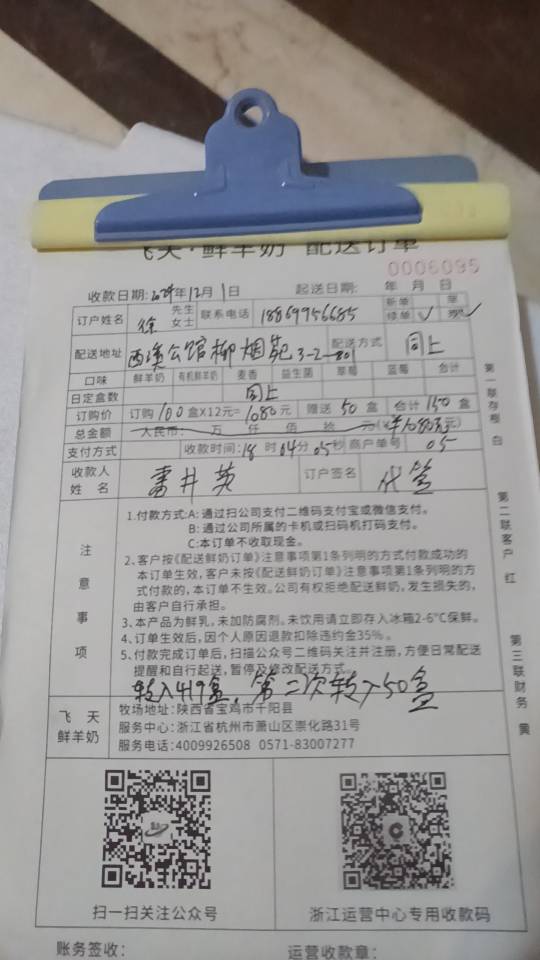 飞天·鲜羊奶 配送订单
0006095
收款日期:2024年12月1日 起送日期: 年 月 日
订户姓名 徐 先生 女士 联系电话 18869956685 新单 续单 ✓
配送地址 西溪公馆柳烟苑3-2-801 配送方式 同上
口味 鲜羊奶 有机鲜羊奶 麦香 益生菌 草莓 蓝莓 合计
日定盒数 同上
订购价 订购100盒X12元=1080元 赠送50盒 合计150盒
总金额 人民币: 万 仟 佰 拾 元(¥1080元)
支付方式 收款时间:18时04分05秒 商户单号 05
收款人姓名 雷井英 订户签名 代签
注意事项
1.付款方式:A:通过扫公司支付二维码支付宝或微信支付。
B:通过公司所属的卡机或扫码机打码支付。
C:本订单不收取现金。
2.客户按《配送鲜奶订单》注意事项第1条列明的方式付款成功的
本订单生效,客户未按《配送鲜奶订单》注意事项第1条列明的方
式付款的,本订单不生效。公司有权拒绝配送鲜奶,发生损失的,
由客户自行承担。
3.本产品为鲜乳,未加防腐剂。未饮用请立即存入冰箱2-6℃保鲜。
4.订单生效后,因个人原因退款扣除违约金35%。
5.付款完成订单后,扫描公众号二维码关注并注册,方便日常配送
提醒和自行起送,暂停及修改配送方式。
转入419盒,第二次转入50盒
飞天鲜羊奶
牧场地址:陕西省宝鸡市千阳县
服务中心:浙江省杭州市萧山区崇化路31号
服务电话:4009926508 0571-83007277
扫一扫关注公众号 浙江运营中心专用收款码
账务签收: 运营收款章:
第一联存根 白
第二联客户 红
第三联财务 黄